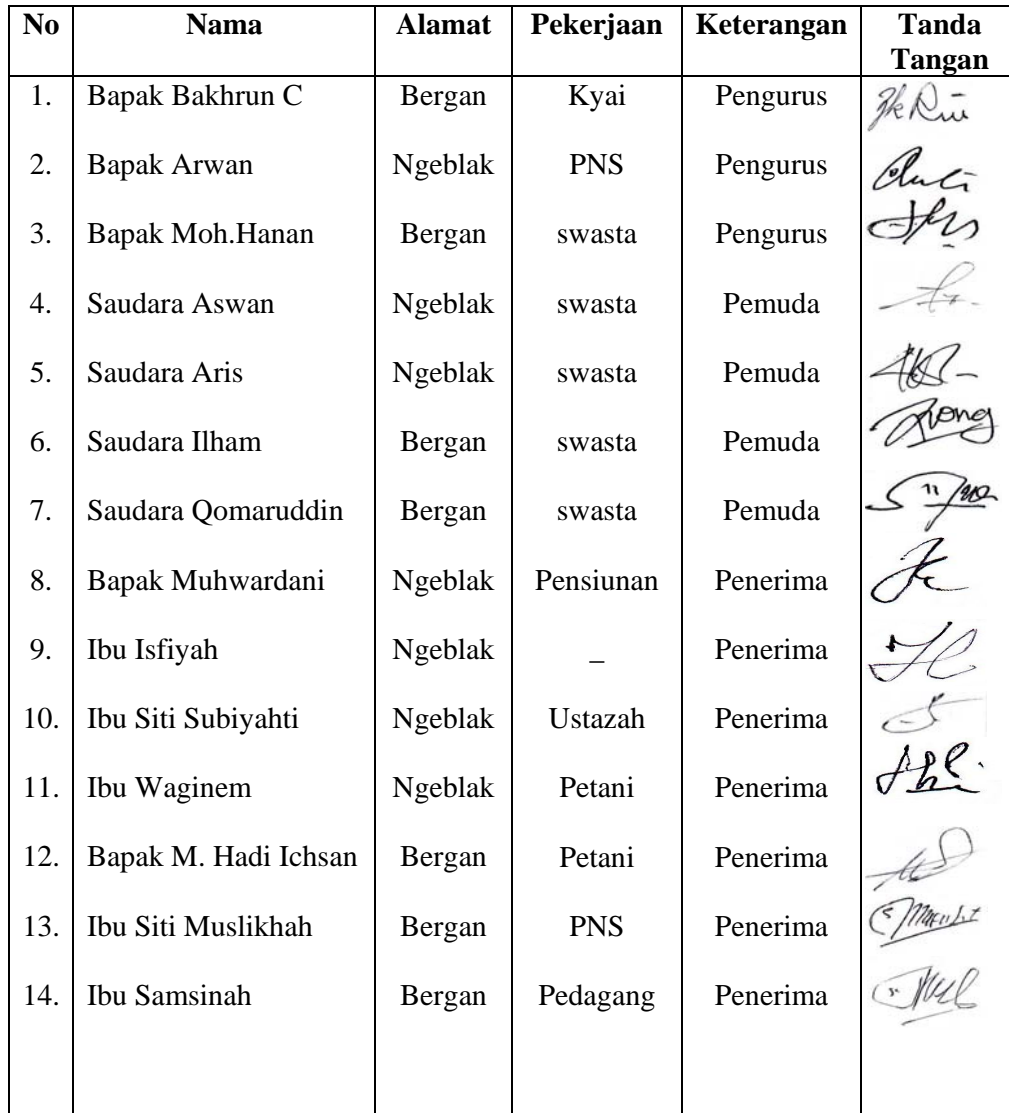 No Nama Alamat Pekerjaan Keterangan Tanda Tangan
1. Bapak Bakhrun C Bergan Kyai Pengurus
2. Bapak Arwan Ngeblak PNS Pengurus
3. Bapak Moh.Hanan Bergan swasta Pengurus
4. Saudara Aswan Ngeblak swasta Pemuda
5. Saudara Aris Ngeblak swasta Pemuda
6. Saudara Ilham Bergan swasta Pemuda
7. Saudara Qomaruddin Bergan swasta Pemuda
8. Bapak Muhwardani Ngeblak Pensiunan Penerima
9. Ibu Isfiyah Ngeblak _ Penerima
10. Ibu Siti Subiyahti Ngeblak Ustazah Penerima
11. Ibu Waginem Ngeblak Petani Penerima
12. Bapak M. Hadi Ichsan Bergan Petani Penerima
13. Ibu Siti Muslikhah Bergan PNS Penerima
14. Ibu Samsinah Bergan Pedagang Penerima